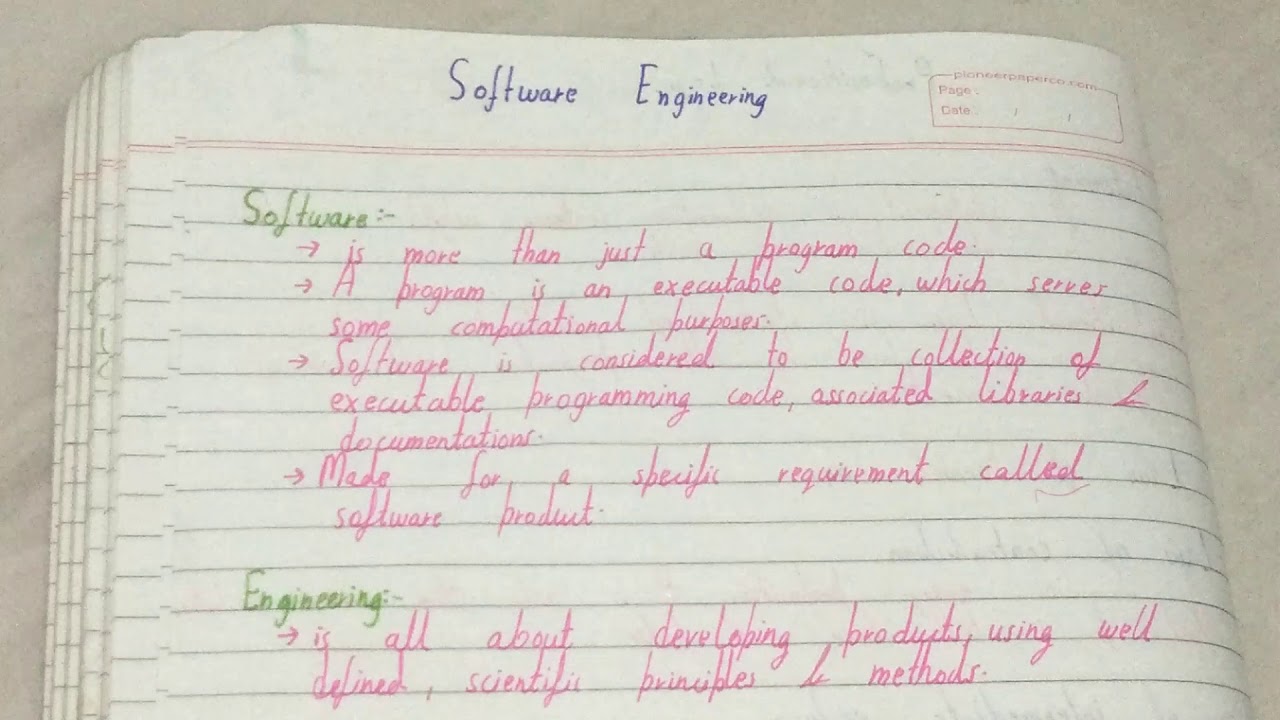 Software Engineering
pioneerpaperco.com
Page :
Date : / /
Software :-
→ is more than just a program code.
→ A program is an executable code, which serves
some computational purposes.
→ Software is considered to be collection of
executable programming code, associated libraries &
documentations.
→ Made for a specific requirement called
software product.
Engineering:-
→ is all about developing products, using well
defined, scientific principles & methods.